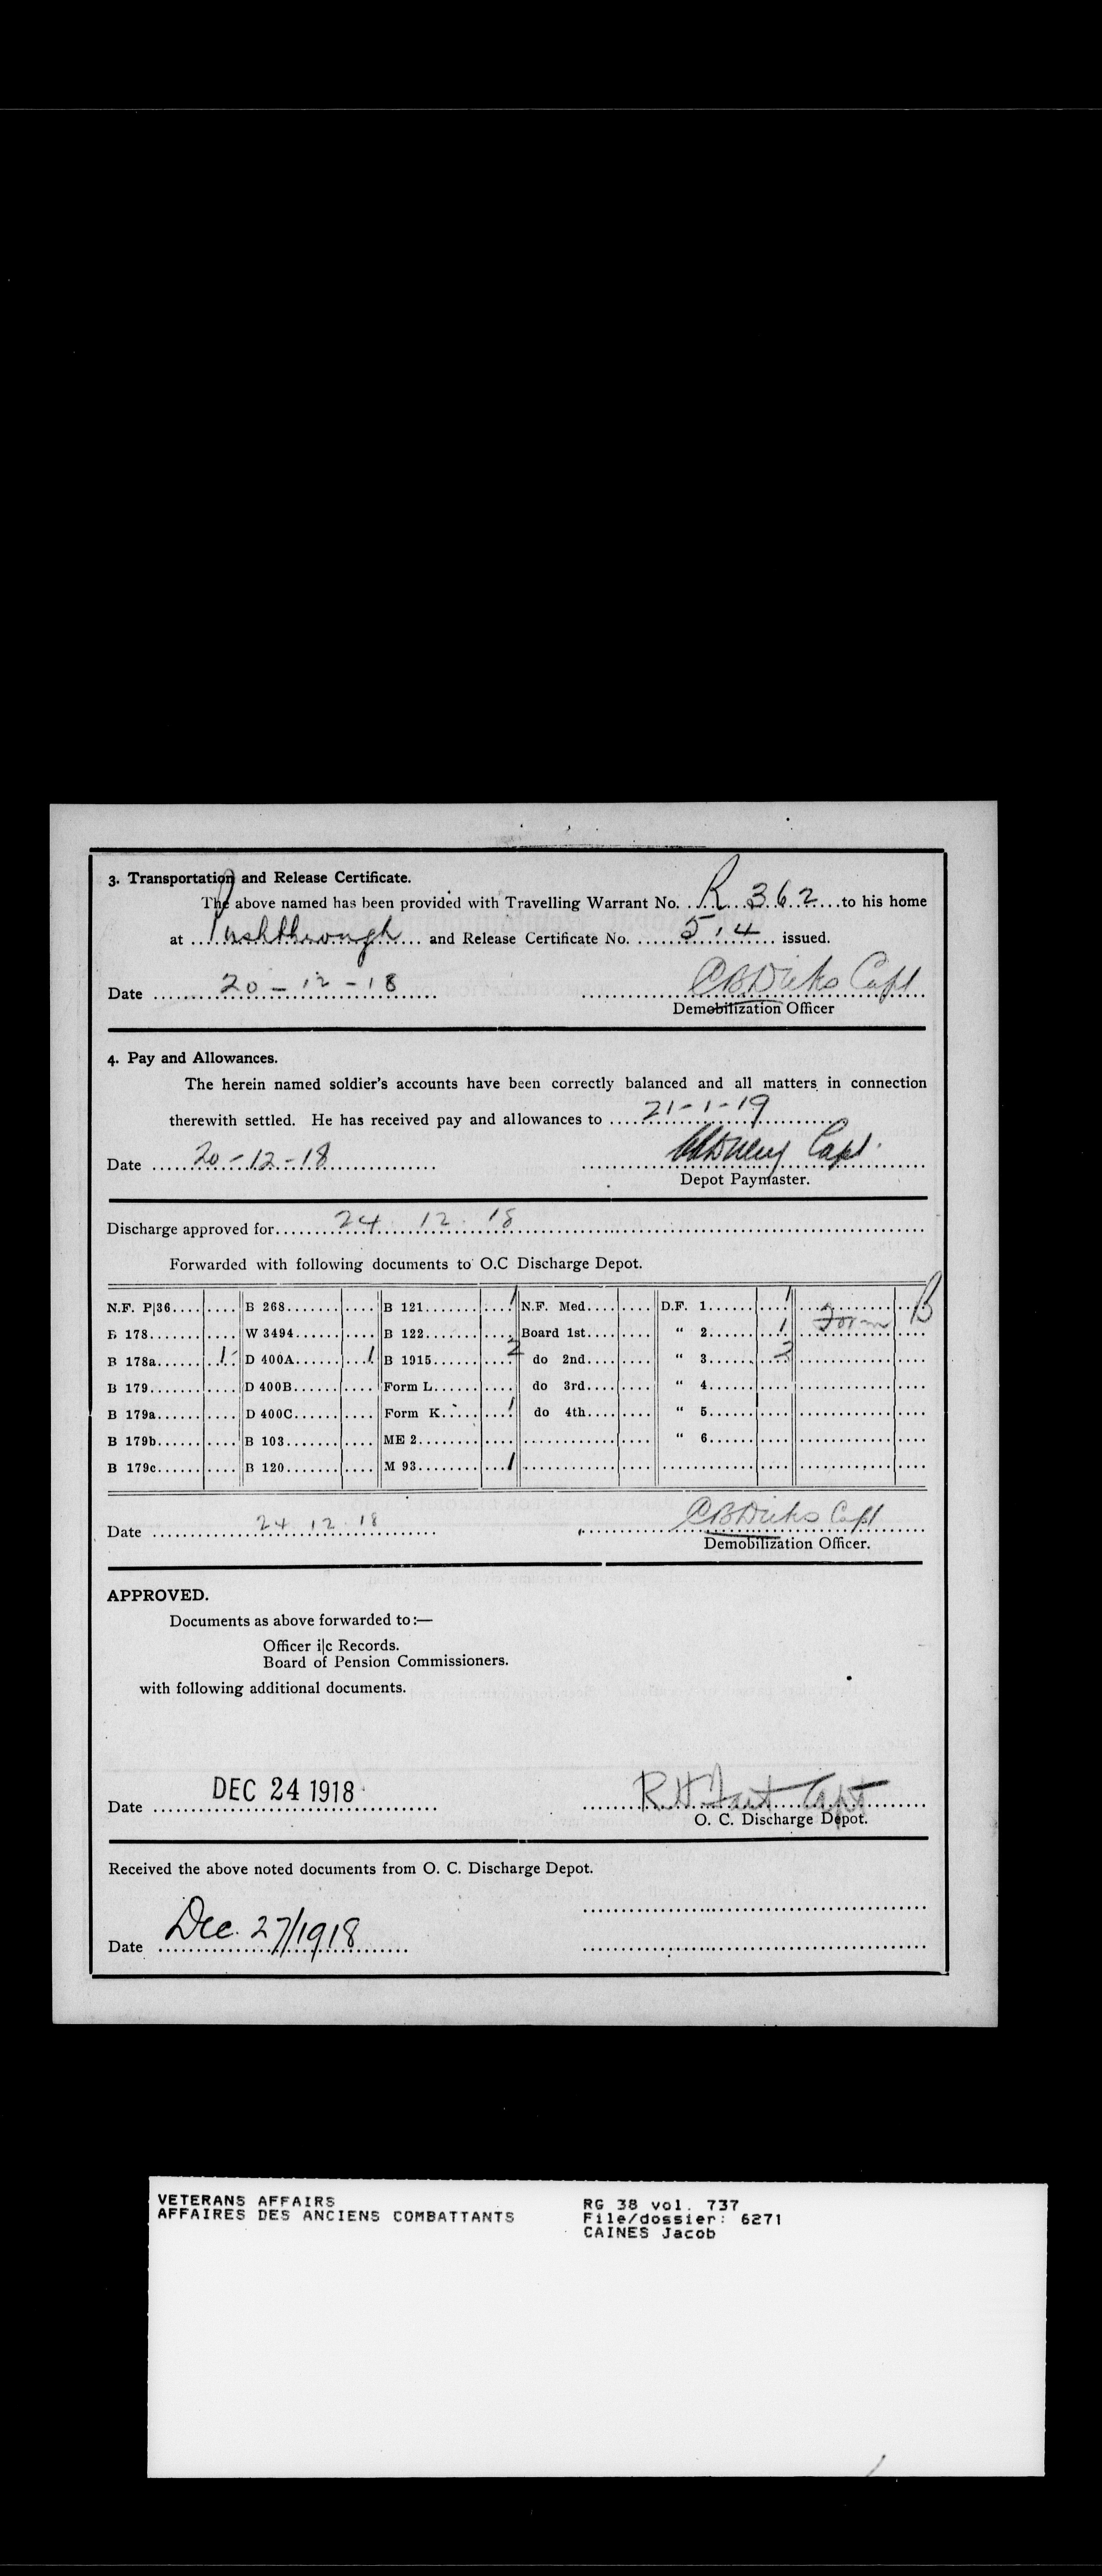 3. Transportation and Release Certificate.
The above named has been provided with Travelling Warrant No. R 362 to his home
at Pushthrough and Release Certificate No. 514 issued.
Date 20-12-18 CB Dicks Capt
Demobilization Officer
4. Pay and Allowances.
The herein named soldier's accounts have been correctly balanced and all matters in connection
therewith settled. He has received pay and allowances to 21-1-19
Date 20-12-18 Capt.
Depot Paymaster.
Discharge approved for 24 12 18
Forwarded with following documents to O.C Discharge Depot.
N.F. P|36 B 268 B 121 1 N.F. Med. D.F. 1 1 Form B
B 178 W 3494 B 122 Board 1st " 2 1
B 178a 1 D 400A 1 B 1915 2 do 2nd " 3 2
B 179 D 400B Form L do 3rd " 4
B 179a D 400C Form K 1 do 4th " 5
B 179b B 103 ME 2 " 6
B 179c B 120 M 93 1
Date 24 12 18 CB Dicks Capt
Demobilization Officer.
APPROVED.
Documents as above forwarded to:—
Officer i|c Records.
Board of Pension Commissioners.
with following additional documents.
Date DEC 24 1918 Capt
O. C. Discharge Depot.
Received the above noted documents from O. C. Discharge Depot.
Date Dec. 27/1918
VETERANS AFFAIRS RG 38 vol. 737
AFFAIRES DES ANCIENS COMBATTANTS File/dossier: 6271
CAINES Jacob